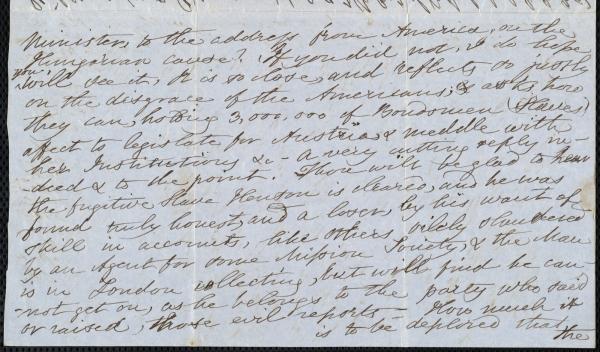 Ministers, to the address from America, on the
Hungarian cause? If you did not, I do hope
you will see it, It is so close, and reflects so justly
on the disgrace of the Americans, & asks, how
they can, holding 3,000,000 of Bondsmen (Slaves)
affect to legislate for Austria & meddle with
her Institutions &c - a very cutting reply in-
-deed & to the point. Thou will be glad to hear
the fugitive Slave Henson is cleared, and he was
found truly honest, and a loser, by his want of
skill in accounts, like others, vilely slandered
by an Agent for some Mission Society, & the Man
is in London collecting, but will find he can-
-not get on, as he belongs to the party who said
or raised, those evil reports - How much it
is to be deplored that
the